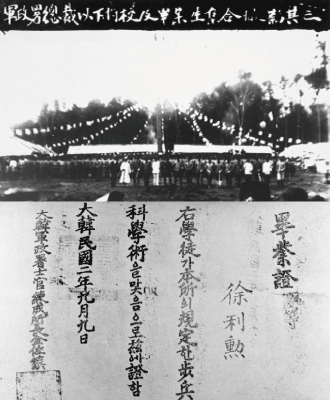 軍政署總裁以下將校及畢業生全合 其三
畢業證
徐利勳
右學徒가本所의規定한步兵
科學術을맞음으로玆에證함
大韓民國二年九月九日
大韓軍政署士官練成所長金佐鎭